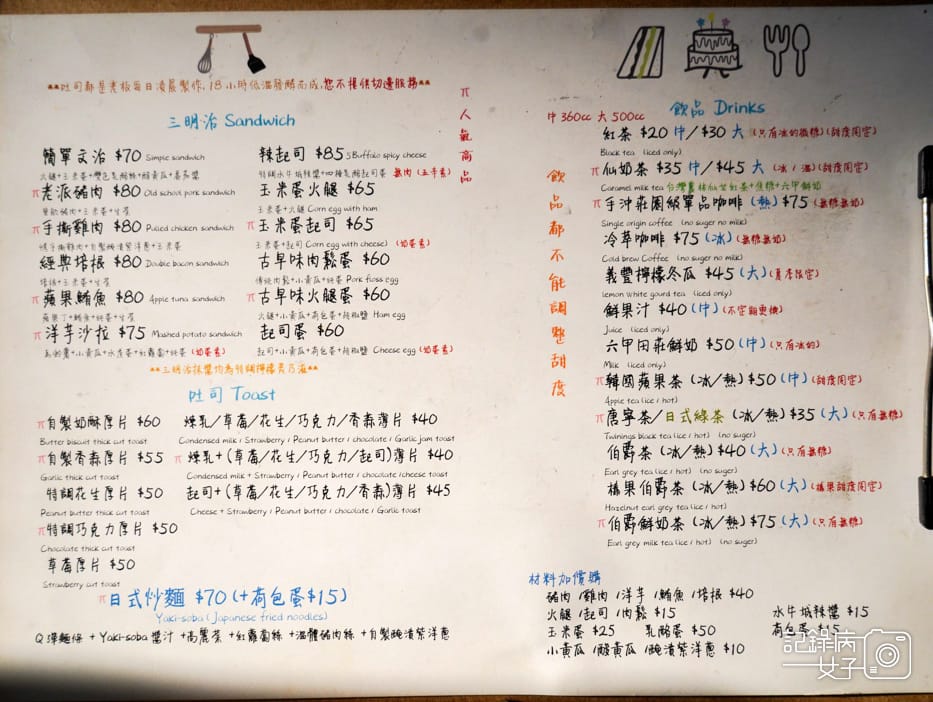 **吐司都是老板每日凌晨製作,18小時低溫發酵而成,恕不提供切邊服務**
三明治 Sandwich
簡單文治 $70 Simple sandwich
火腿+玉米蛋+
π老派豬肉 $80 Old school pork sandwich
π手撕雞肉 $80 Pulled chicken sandwich
經典培根 $80 Double bacon sandwich
培根+玉米蛋+生菜
π蘋果鮪魚 $80 Apple tuna sandwich
蘋果丁+鮪魚+
π洋芋沙拉 $75 Mashed potato sandwich
馬鈴薯+小黃瓜+水煮蛋+紅蘿蔔+ (奶蛋素)
辣起司 $85 5Buffalo spicy cheese
特調水牛城辣醬+四種乳酪起司 無肉(五辛素)
玉米蛋火腿 $65
玉米蛋+火腿 Corn egg with ham
π玉米蛋起司 $65
玉米蛋+起司 (Corn egg with cheese) (奶蛋素)
古早味肉鬆蛋 $60
傳統肉鬆+小黃瓜+ Pork floss egg
π古早味火腿蛋 $60
火腿+小黃瓜+荷包蛋+胡椒鹽 Ham egg
起司蛋 $60
起司+小黃瓜+荷包蛋+胡椒鹽 Cheese egg (奶蛋素)
**三明治抹醬均為特調檸檬美乃滋**
π人氣商品
吐司 Toast
π自製奶酥厚片 $60
Butter biscuit thick cut toast
π自製香蒜厚片 $55
Garlic thick cut toast
特調花生厚片 $50
Peanut butter thick cut toast
π特調巧克力厚片 $50
Chocolate thick cut toast
草莓厚片 $50
Strawberry cut toast
煉乳/草莓/花生/巧克力/香蒜薄片 $40
Condensed milk / Strawberry / Peanut butter / chocolate / Garlic jam toast
π煉乳+(草莓/花生/巧克力/起司)薄片 $40
Condensed milk + Strawberry / Peanut butter / chocolate /cheese toast
起司+(草莓/花生/巧克力/香蒜)薄片 $45
Cheese + Strawberry / Peanut butter / chocolate / Garlic toast
π日式炒麵 $70 (+荷包蛋$15)
Yaki-soba (Japanese fried noodles)
Q彈麵條 + Yaki-soba 醬汁 +高麗菜 +紅蘿蔔絲 +溫體豬肉絲 +自製醃漬紫洋蔥
飲品 Drinks
中 360cc 大 500cc
飲品都不能調整甜度
紅茶 $20 中/$30 大 (只有冰的微糖)(甜度固定)
Black tea (iced only)
π仙奶茶 $35 中/$45 大 (冰/溫)(甜度固定)
Caramel milk tea 台灣嘉林仙女紅茶+焦糖+六甲鮮奶
π手沖莊園級單品咖啡 (熱) $75 (無糖無奶)
Single origin coffee (no suger no milk)
冷萃咖啡 $75 (冰) (無糖無奶)
Cold brew Coffee (no suger no milk)
義豐檸檬冬瓜 $45 (大) (夏季限定)
lemon white gourd tea (iced only)
鮮果汁 $40 (中) (不定期更換)
Juice (iced only)
六甲田莊鮮奶 $50 (中) (只有冰的)
Milk (iced only)
π韓國蘋果茶 (冰/熱) $50 (中) (甜度固定)
Apple tea (ice / hot)
π唐寧茶/日式綠茶 (冰/熱) $35 (大) (只有無糖)
Twinings black tea (ice / hot) (no suger)
伯爵茶 (冰/熱) $40 (大) (只有無糖)
Earl grey tea (ice / hot) (no suger)
榛果伯爵茶 (冰/熱) $60 (大) (榛果甜度固定)
Hazelnut earl grey tea (ice / hot)
π伯爵鮮奶茶 (冰/熱) $75 (大) (只有無糖)
Earl grey milk tea (ice / hot) (no suger)
材料加價購
豬肉 /雞肉 /洋芋 /鮪魚 /培根 $40
火腿 /起司 /肉鬆 $15 水牛城辣醬 $15
玉米蛋 $25 乳酪蛋 $50 荷包蛋 $15
小黃瓜 /酸黃瓜 /醃漬紫洋蔥 $10
記錄病女子